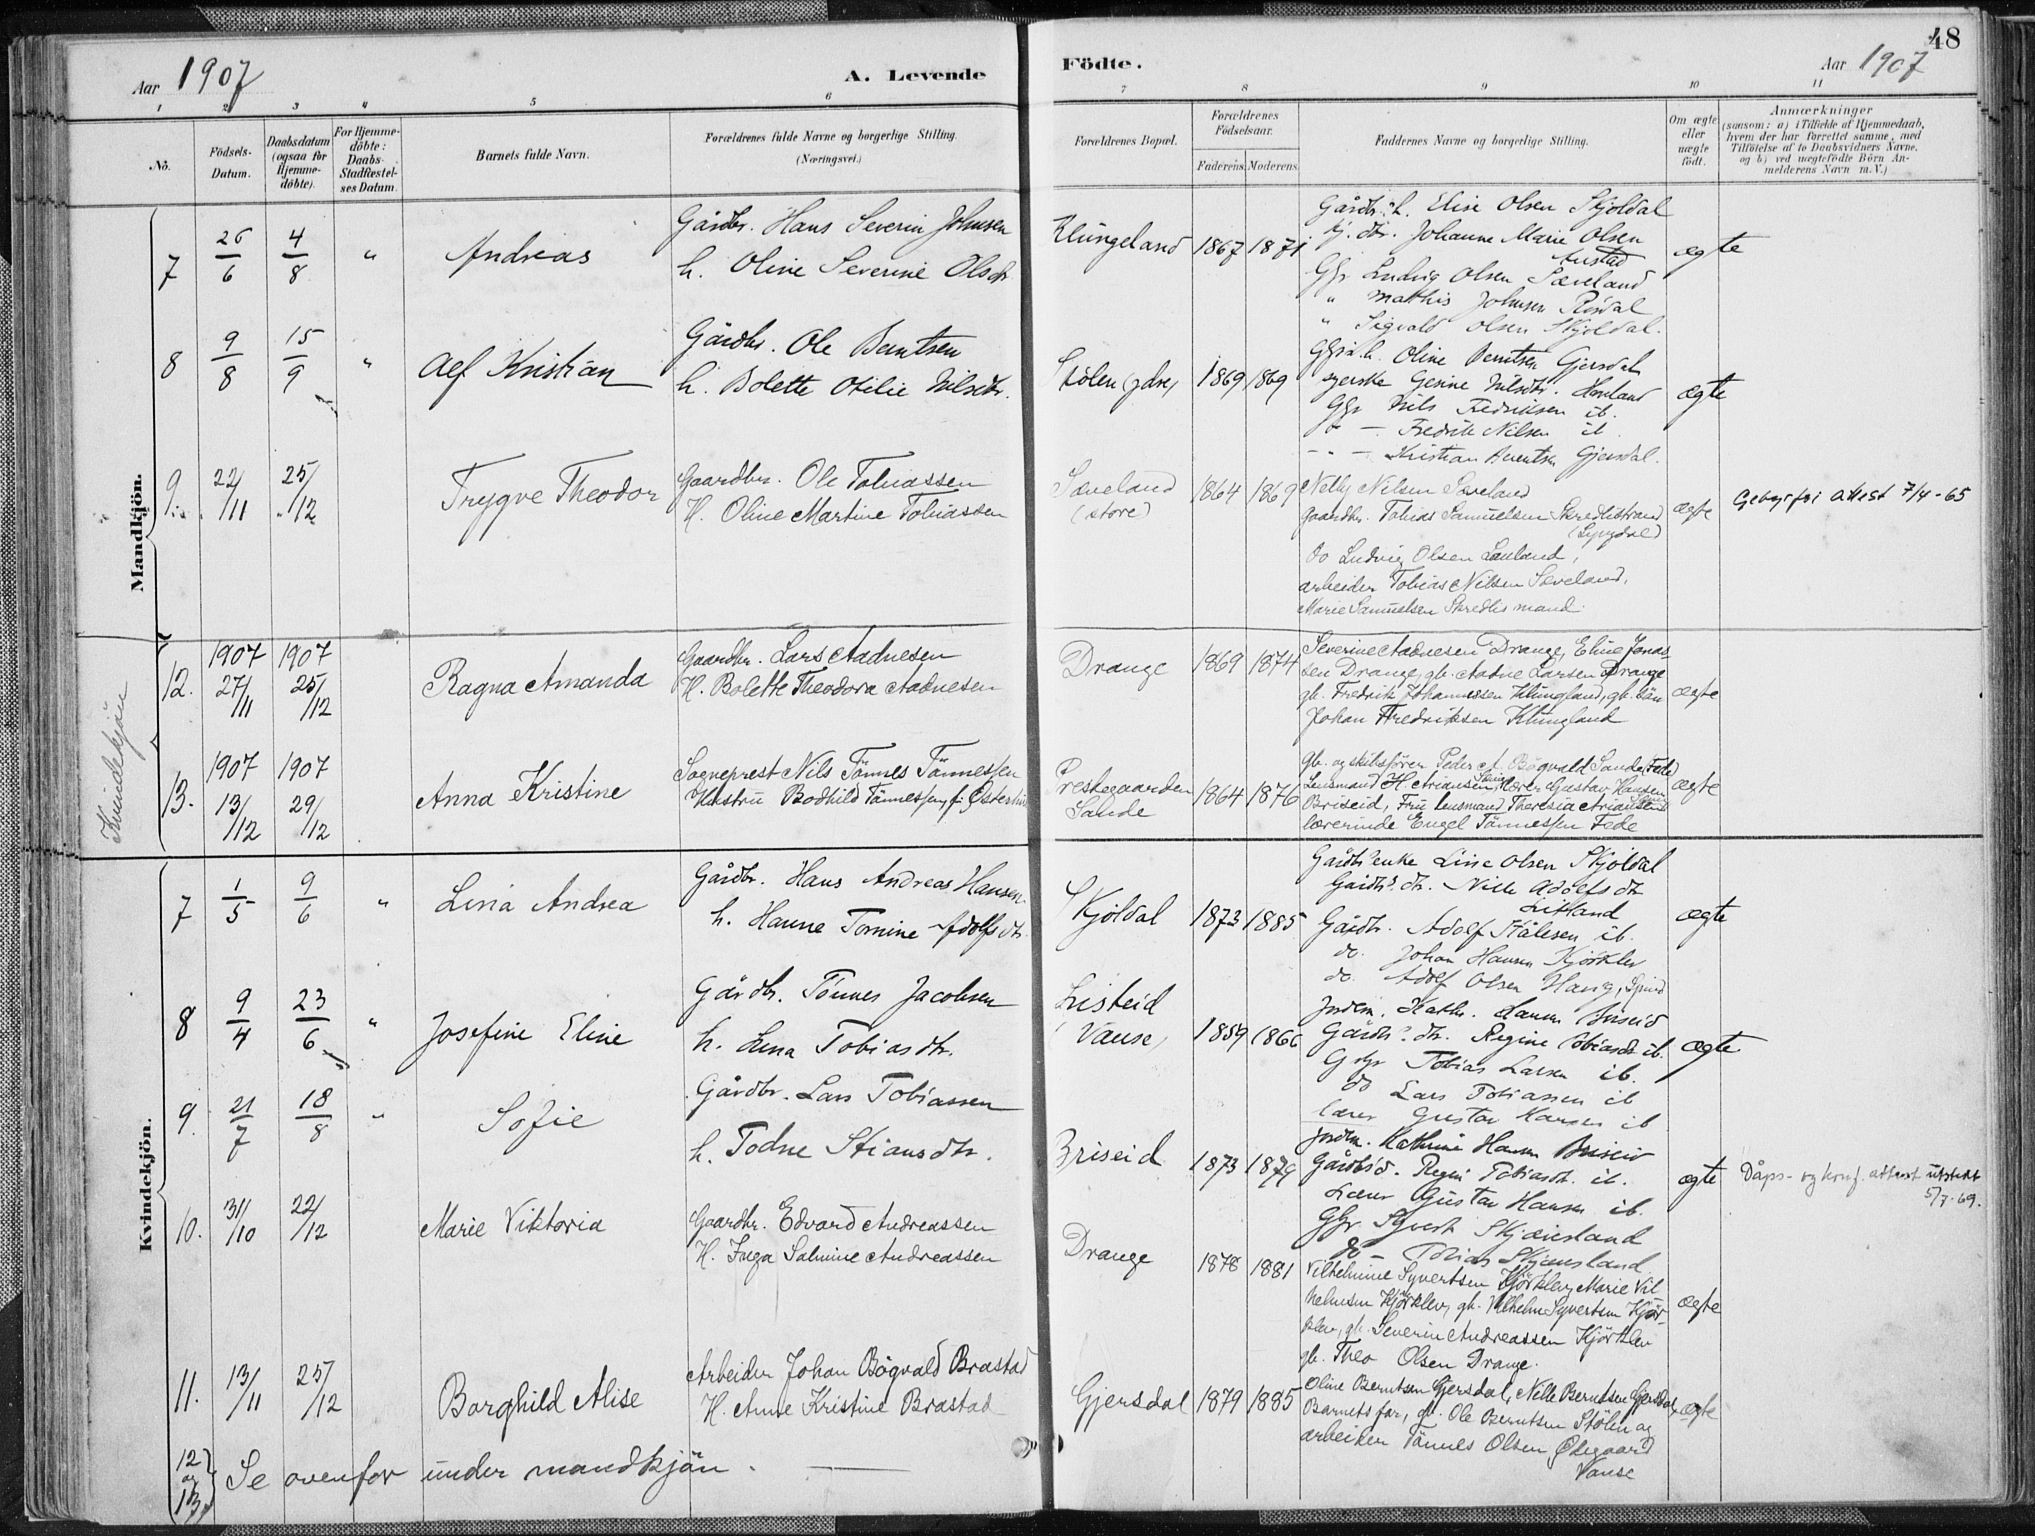 48
Aar 1907
A. Levende
Födte.
Aar 1907
1 2 3 4 5 6 7 8 9 10 11
No.
Födsels-
Datum.
Daabsdatum
(ogsaa for
Hjemme-
döbte).
For Hjemme-
döbte:
Daabs-
Stadfæstel-
ses Datum.
Barnets fulde Navn.
Forældrenes fulde Navne og borgerlige Stilling.
(Næringsvei.)
Forældrenes Bopæl.
Forældrenes
Födselsaar.
Faderens
Moderens
Faddernes Navne og borgerlige Stilling.
Om ægte
eller
uægte
födt.
Anmærkninger
(saasom: a) i Tilfælde af Hjemmedaab,
hvem der har forrettet samme, med
Tilföielse af to Daabsvidners Navne.
og b) ved uægtefödte Börn An-
melderens Navn m.V.)
Mandkjön.
7 26/6 4/8 " Andreas
Gårdbr. Hans Severin Johnsen
h. Oline Severine Olsdr.
Klungeland 1867 1871
Gårdbr. h. Elise Olsen Skjoldal
pj. dtr. Johanne Marie Olsen
Austad
Gbr Ludvig Olsen Sæveland
" Mathis Johnsen Rösdal
" Sigvald Olsen Skjoldal.
ægte
8 9/8 15/9 " Alf Kristian
Gårdbr. Ole Berntsen
h. Bolette Otilie Nilsdtr.
Stölen (ydre) 1869 1869
Gbr. h. Oline Berntsen Gjersdal
syerske Gesine Nilsdtr. Havland
Gbr Nils Fredriksen ib.
" — Fredrik Nilsen ib
— " — Kristian Berntsen Gjersdal.
ægte
9. 22/11 25/12 Trygve Theodor
Gaardbr. Ole Tobiassen
H. Oline Martine Tobiassen
Sæveland
(store)
1864 1869
Nelly Nilsen Sæveland
Gaardbr. Tobias Samuelsen Skredlistrand
(Lyngdal)
Do Ludvig Olsen Sæveland,
arbeider Tobias Nilsen Sæveland,
Marie Samuelsen Skredlistrand.
ægte
Gebyrfri attest 7/4-65
Kvindekjön
12. 1907 27/11 1907 25/12 Ragna Amanda
Gaardbr. Lars Aadnesen
H. Bolette Theodora Aadnesen
Drange 1869 1874
Severine Aadnesen Drange, Eline Jonas-
sen Drange, gb. Aadne Larsen Drange
gb. Fredrik Johannessen Klungland, gb. sön
Johan Fredriksen Klungland
ægte
13. 1907 13/12 1907 29/12 Anna Kristine
Sogneprest Nils Tönnes Tönnessen
Hustru Bodhild Tönnessen, f. Österhus
Prestegaarden
Sande
1864 1876
Gb. og skibsförer Peder A. Bögvald Sande (Fede)
Lensmand H. Ariansen, lærer Gustav Hansen
Briseid, Fru lensmand Theresia Ariansen
lærerinde Engel Tönnessen Fede
ægte
Kvindekjön.
7 1/5 9/6 " Lina Andrea
Gårdbr. Hans Andreas Hansen
h. Hanne Tomine Adolfsdtr.
Skjöldal 1873 1885
Gårdbr enke Line Olsen Skjöldal
Gårdbr. dtr. Nille Adolfsdtr
Gårdbr. Adolf Stålesen ib.
do. Johan Hansen Kjörklev
do. Adolf Olsen Haug, Spind
ægte
8 9/4 23/6 " Josefine Eline
Gårdbr. Tönnes Jacobsen
h. Lina Tobiasdtr.
Listeid
Vanse,
1859 1866
Jordm. Kathr. Hansen Briseid
Gårdbr. dtr. Regine Tobiasdtr ib.
Gbr Tobias Larsen ib.
do Lars Tobiassen ib
lærer Gustav Hansen ib
ægte
9. 21/7 18/8 " Sofie
Gårdbr. Lars Tobiassen
h. Todne Stiansdtr.
Briseid 1873 1879
Jordm. Kathrine Hansen Briseid
Gårdbr. d. Regine Tobiasdtr. ib.
Lærer Gustav Hansen ib.
Gbr Syvert Skjæveland
do — Tobias Skjæveland
ægte
Dåps- og konf. attest utstedt
5/7-69.
10. 31/10 22/12 Marie Viktoria
Gaardbr. Edvard Andreassen
H. Inga Salmine Andreassen
Drange 1878 1881
Vilhelmine Syvertsen Kjörklev, Marie Vil-
helmsen Kjörklev, gb. Vilhelm Syvertsen Kjör-
klev, gb. Severin Andreassen Kjörklev
gb. Theo Olsen Drange.
ægte
11. 13/11 25/12 Borghild Alise
Arbeider Johan Bögvald Brastad
H. Anne Kristine Brastad
Gjersdal 1879 1885
Oline Berntsen Gjersdal, Nille Berntsen Gjersdal,
Barnets far, gb. Ole Berntsen Stölen og
arbeider Tönnes Olsen Ödegaard
Vanse
ægte
12 og 13 } Se ovenfor under mandkjön.